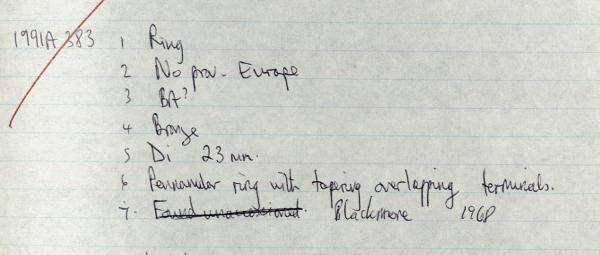 1991A 383 1 Ring
2 No prov. Europe
3 BA?
4 Bronze
5 Di 23 mm.
6 Pennanular ring with tapering overlapping terminals.
7. Found unaccessioned. Blackmore 1968